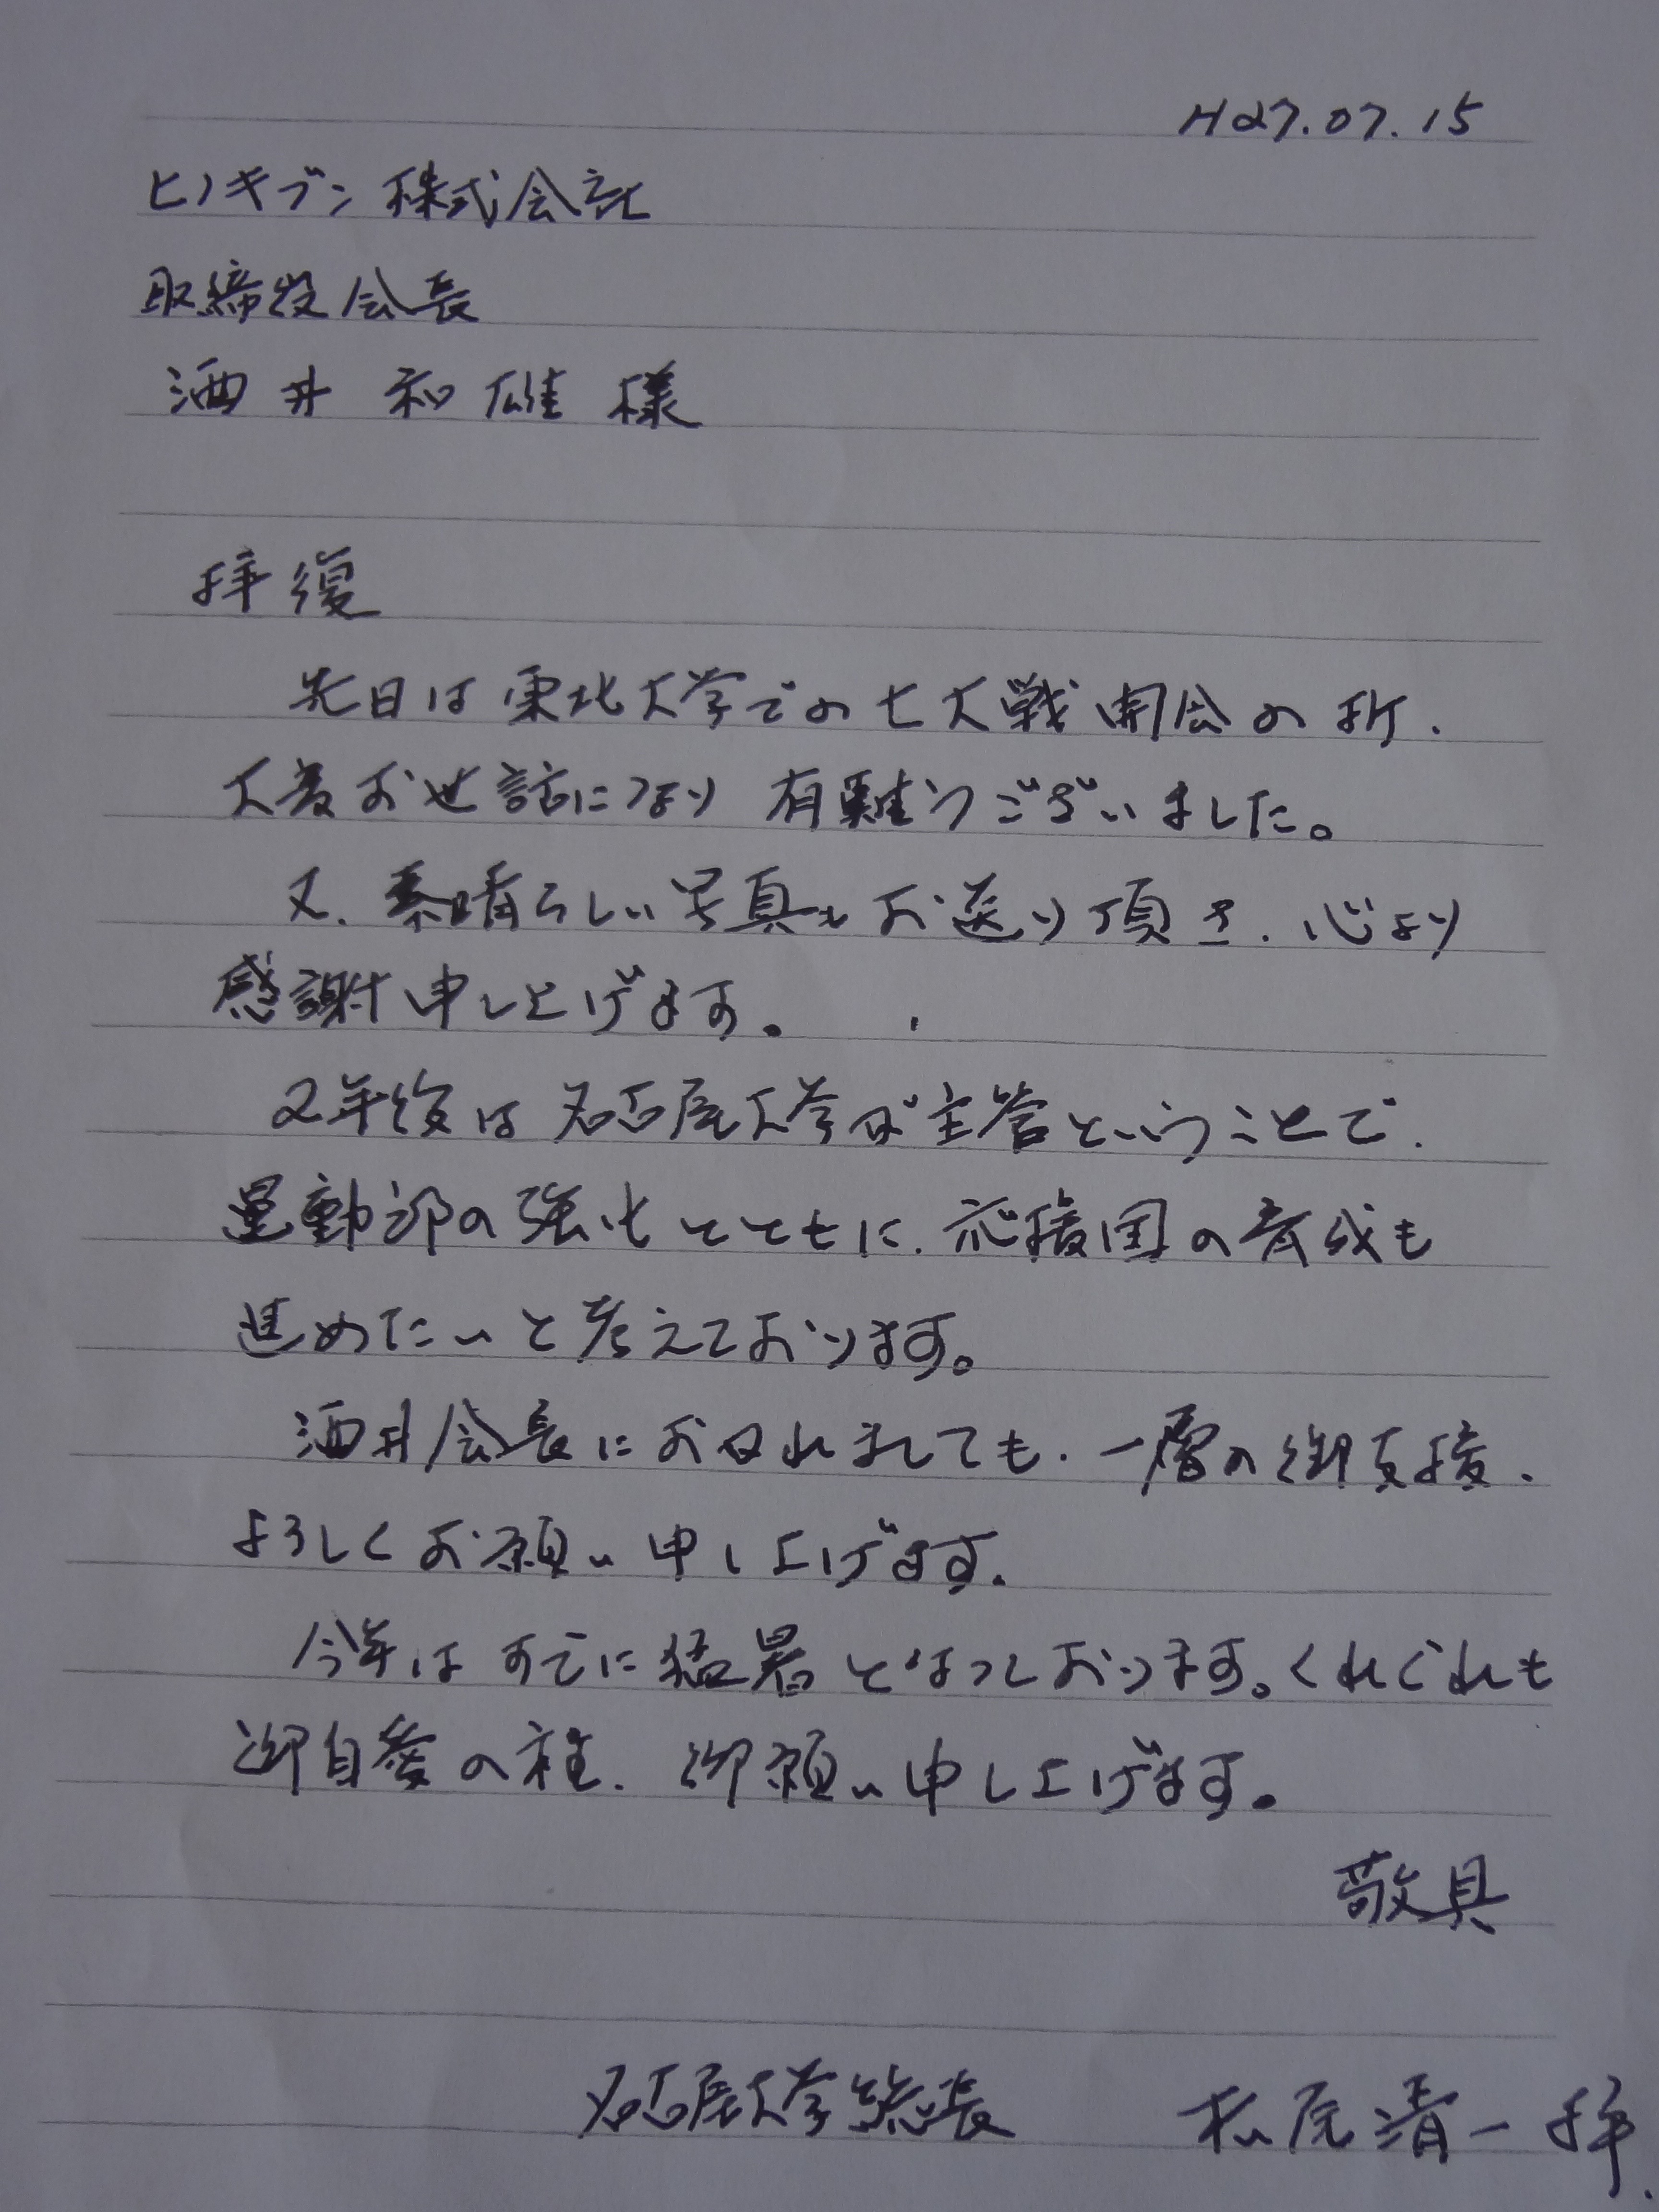 H27.07.15
ヒノキブン株式会社
取締役会長
酒井和雄様
拝復
先日は東北大学での七大戦開会の折、
大変お世話になり有難うございました。
又、素晴らしい写真もお送り頂き、心より
感謝申し上げます。
2年後は名古屋大学が主管ということで、
運動部の強化とともに、応援団の育成も
進めたいと考えております。
酒井会長におかれましても、一層の御支援、
よろしくお願い申し上げます。
今年はすでに猛暑となっております。くれぐれも
御自愛の程、御願い申し上げます。
敬具
名古屋大学総長 松尾清一 拝.